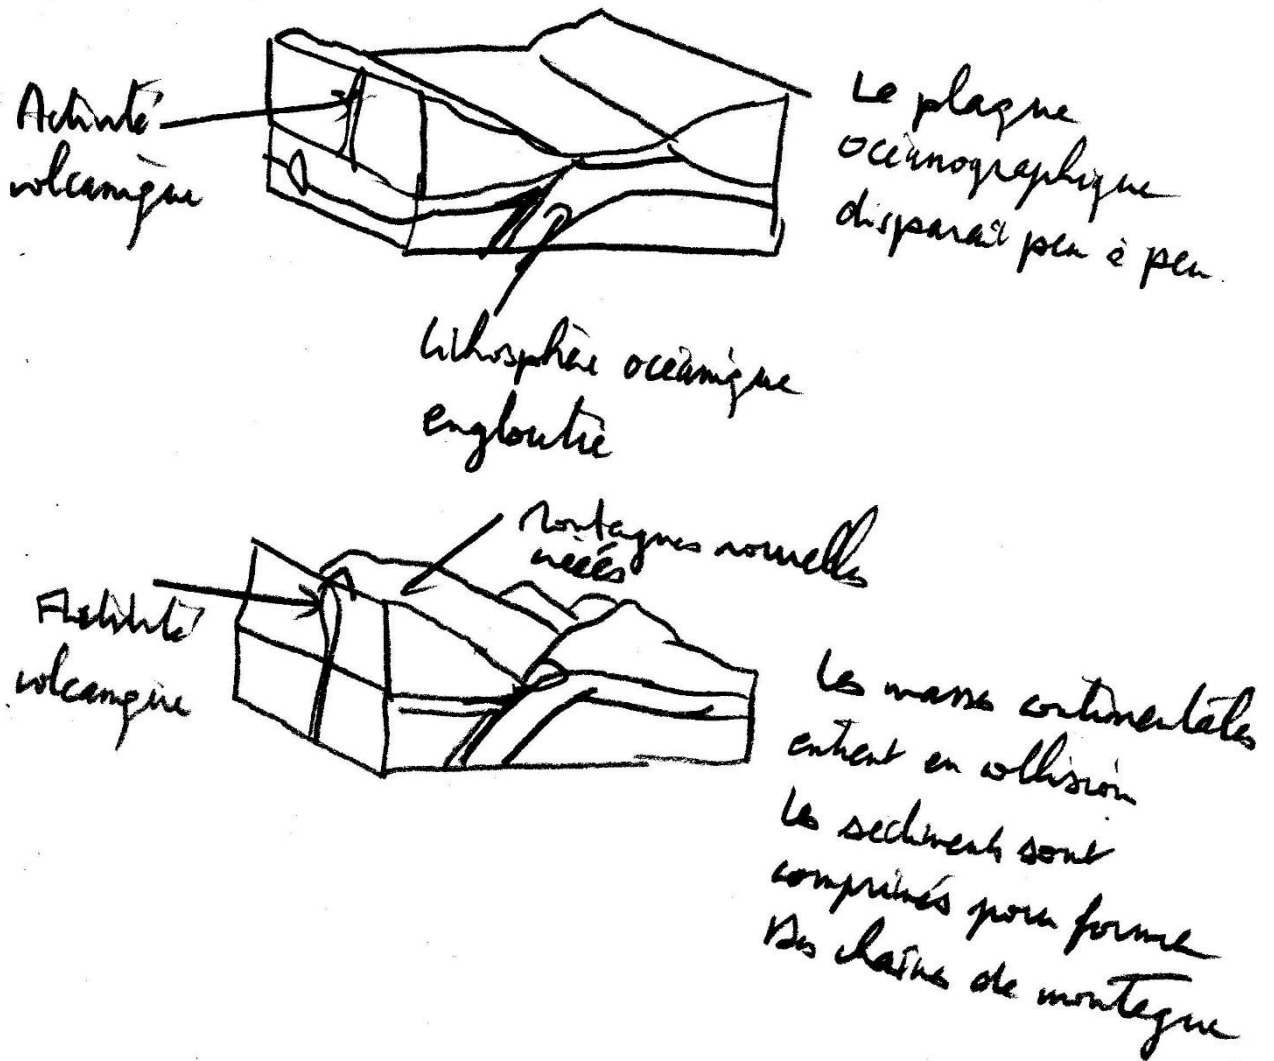 Activité
volcanique
La plaque
océanographique
disparait peu à peu.
Lithosphère océanique
engloutie
Montagnes nouvelles
créés
Activité
volcanique
Les masses continentales
entrent en collision
Les sediments sont
comprimés pour former
Des chaînes de montagne